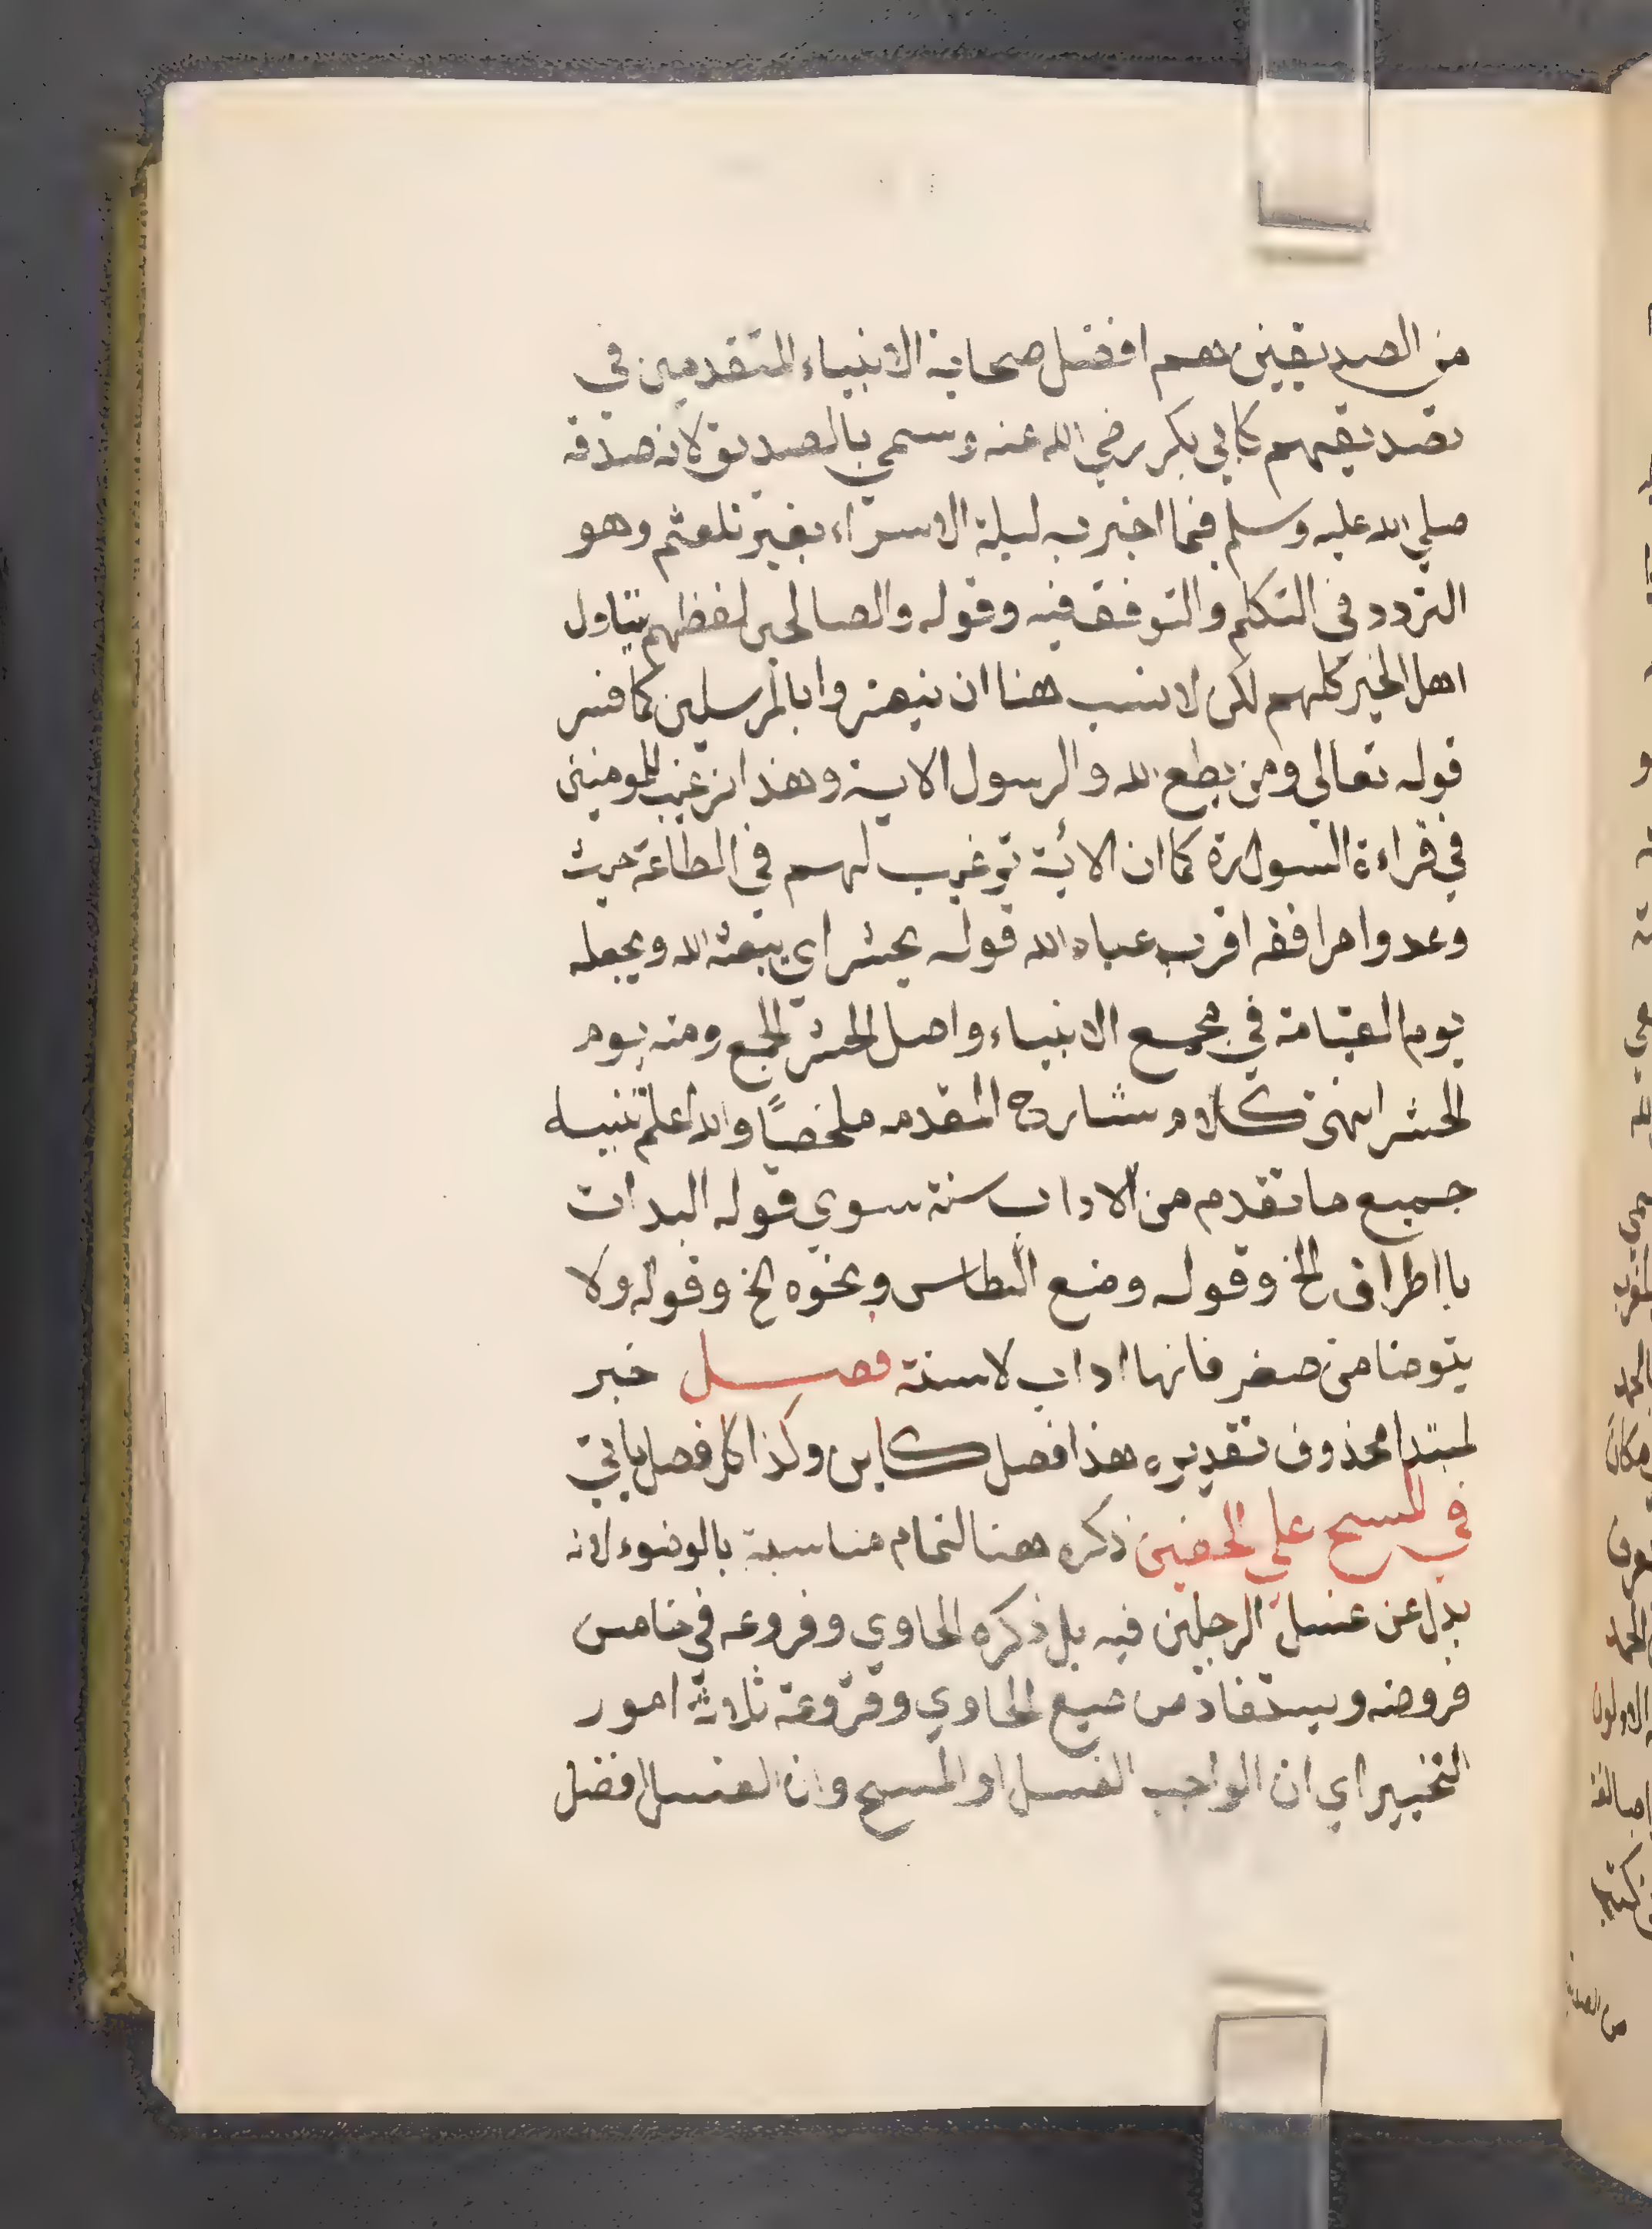 من الصديقين هم افضل صحابة الانبياء المتقدمين في
تصديقهم كابي بكر رضي الله عنه وسمي بالصديق لانه صدقه
صلي الله عليه وسلم فيما اخبر به ليلة الاسراء بغير تلعثم وهو
التردد في التكلم والتوقف فيه وقوله والصالحين لفظهم يتناول
اهل الخير كلهم لكن الانسب هنا ان بالمرسلين كما فسر
قوله تعالي ومن يطع الله والرسول الاية وهذا ترغيب للمومنين
في قراءة السورة كما ان الاية ترغيب لهم في الطاعة حيث
وعدوا مرافقة اقرب عباد الله قوله يحشر اي يبعثه الله ويجعله
يوم القيامة في مجمع الانبياء واصل الحشر الجمع ومنه يوم
الحشر انتهى كلام شارح المقدمه ملخصًا والله اعلم تنبيه
جميع ما تقدم من الاداب سنة سوي قوله البدات
بااطراف الخ وقوله وضع الطاس ونحوه الخ وقوله ولا
يتوضا من صفر فانها اداب لا سنة فصل خبر
لمبتدا محذوف تقديره هذا فصل كاين وكذا كل فصل ياتي
في المسح علي الخفين ذكره هنا لتمام مناسبة بالوضوء لانه
بدل عن غسل الرجلين فيه بل ذكره الحاوي وفروعه في خامس
فروضه ويستفاد من صيع الحاوي وفروعة ثلاثة امور
التخيير اي ان الواجب الغسل او المسح وان الغسل افضل